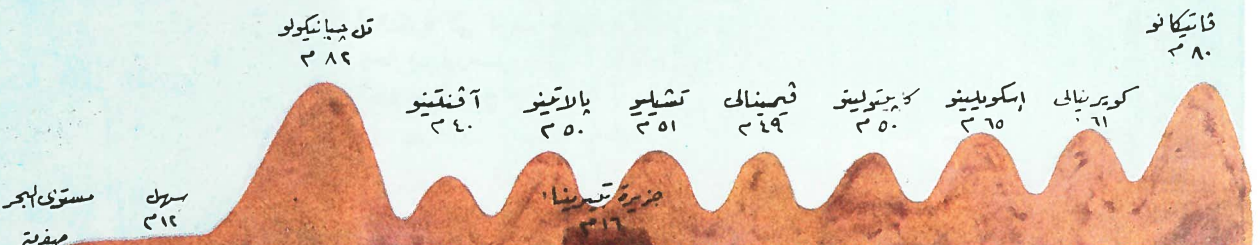 ڤاتيكانو
٨٠ م
كويرينيالى
٦١
إسكويلينو
٦٥ م
كاپيتولينو
٥٠ م
ڤيمينالى
٤٩ م
تشيليو
٥١ م
پالاتينو
٥٠ م
آڤنتينو
٤٠ م
تل چيانيكولو
٨٢ م
جزيرة تيبرينا
١٦ م
سهل
١٢ م
مستوى البحر